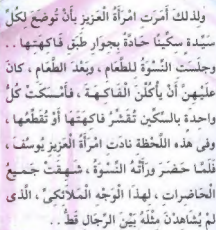 ولذلك أمرت امْرَأَةُ الْعَزِيزِ بِأَنْ تُوضَعَ لِكُلِّ
سَيِّدة سِكِّينًا حَادَّةً بِجِوَارِ طَبَقِ فَاكِهَتِهَا ..
وجلسَت النِّسْوَةُ للطَّعامِ ، وبَعْدَ الطَّعَامِ ، كانَ
عَلَيْهِنَّ أَنْ يَأْكُلْنَ الْفَاكِهَةَ ، فَأَمْسَكَتْ كُلُّ
واحدة بالسِّكينِ تُقَشِّرُ فَاكِهَتَهَا أَوْ تُقَطِّعُهَا ،
وفى هذه اللَّحْظةِ نادَت امْرَأَةُ الْعَزِيزِ يُوسُفَ ،
فلمَّا حَضَرَ وَرَأَتْهُ النِّسْوَةُ ، شَهِقَتْ جَمِيعُ
الْحَاضِرَاتِ ، لِهذَا الْوَجْهِ الْمَلَائِكىِّ ، الَّذى
لَمْ يُشَاهِدْنَ مِثْلَهُ بَيْنَ الرِّجَالِ قَطُّ ..